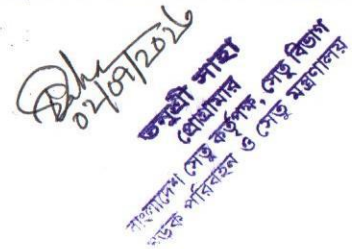 ০২/০৭/২০২৬
তনুশ্রী সাহা
প্রোগ্রামার
বাংলাদেশ সেতু কর্তৃপক্ষ, সেতু বিভাগ
সড়ক পরিবহন ও সেতু মন্ত্রণালয়